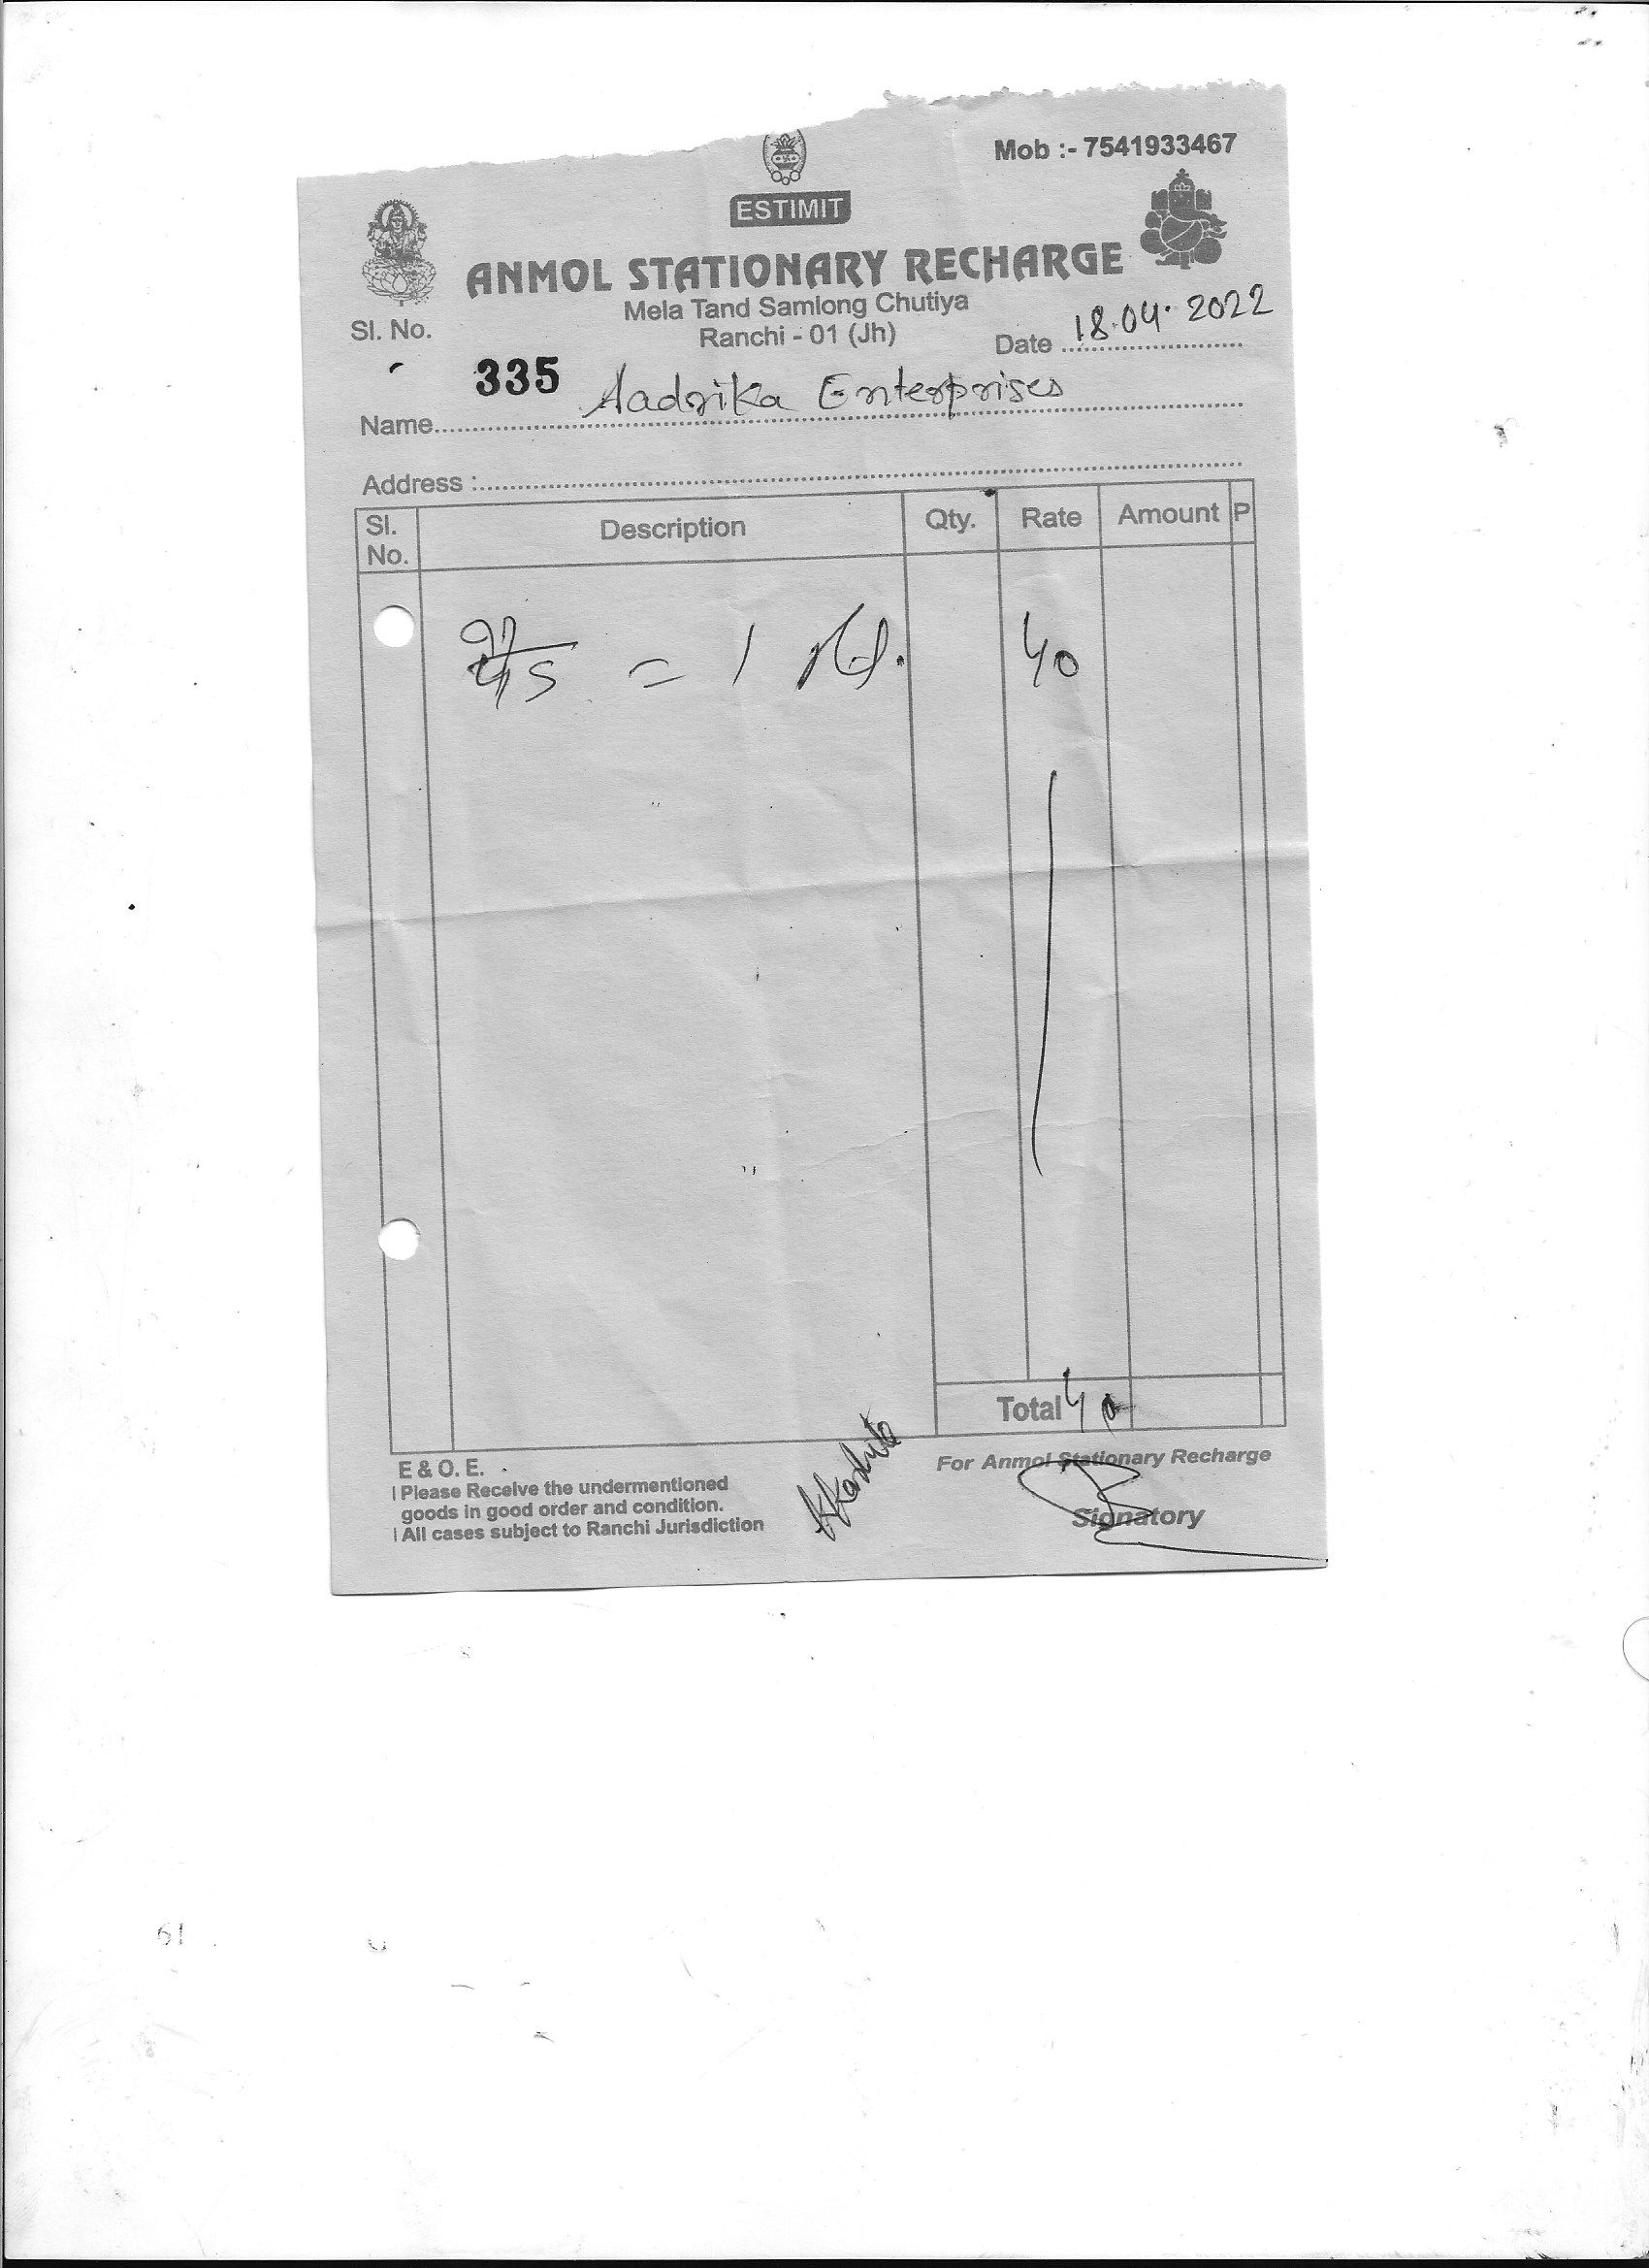 Mob :- 7541933467
ESTIMIT
ANMOL STATIONARY RECHARGE
Mela Tand Samlong Chutiya
Ranchi - 01 (Jh)
Sl. No.
335
Date 18.04.2022
Name Aadrika Enterprises
Address :
Sl. No. Description Qty. Rate Amount P
= 1 40
Total 40
E & O. E.
For Anmol Stationary Recharge
Please Receive the undermentioned
goods in good order and condition.
All cases subject to Ranchi Jurisdiction
Signatory